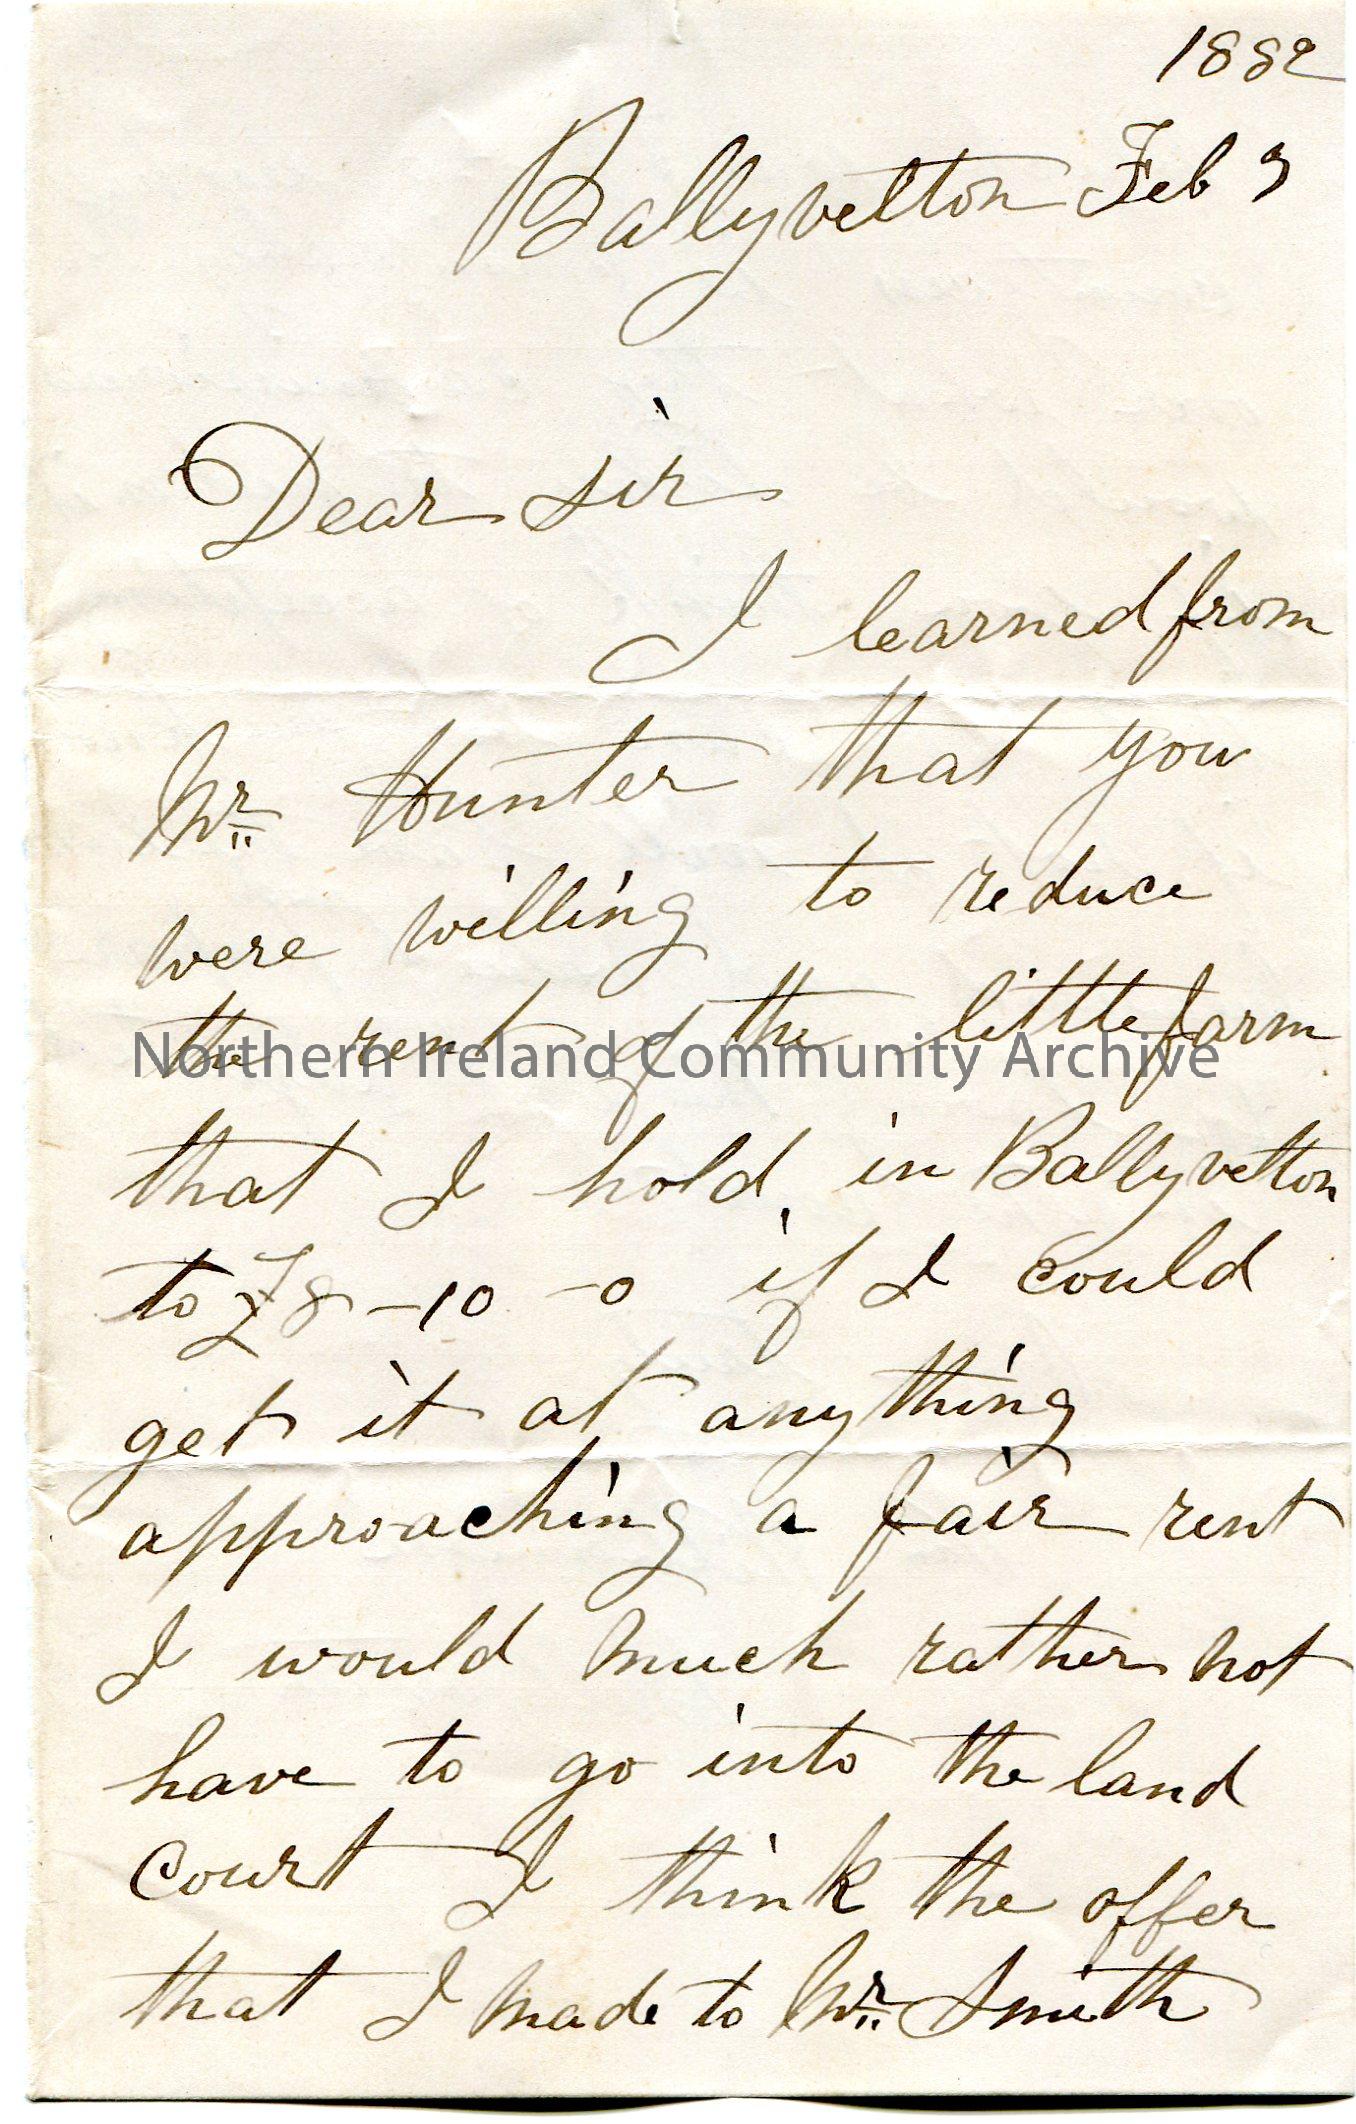 1882
Ballyvelton Feb 3
Dear sir
I learned from
Mr Hunter that you
were willing to reduce
the rent of the little farm
that I hold in Ballyvelton
to £8-10-0 if I could
get it at anything
approaching a fair rent
I would much rather not
have to go into the land
court I think the offer
that I made to Mr Smith
Northern Ireland Community Archive